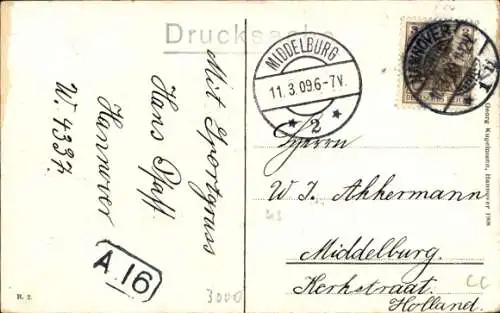 Drucksache
Mit Sportgruss
Hans Pfaff
Hannover
W. 4337.
A.16
R. 2.
3000
MIDDELBURG
11.3.09.6-7V.
* 2 *
HANNOVER
Herrn
W. J. Akkermann
Middelburg.
Kerkstraat.
Holland.
CC
Georg Kugelmann, Hannover 1908